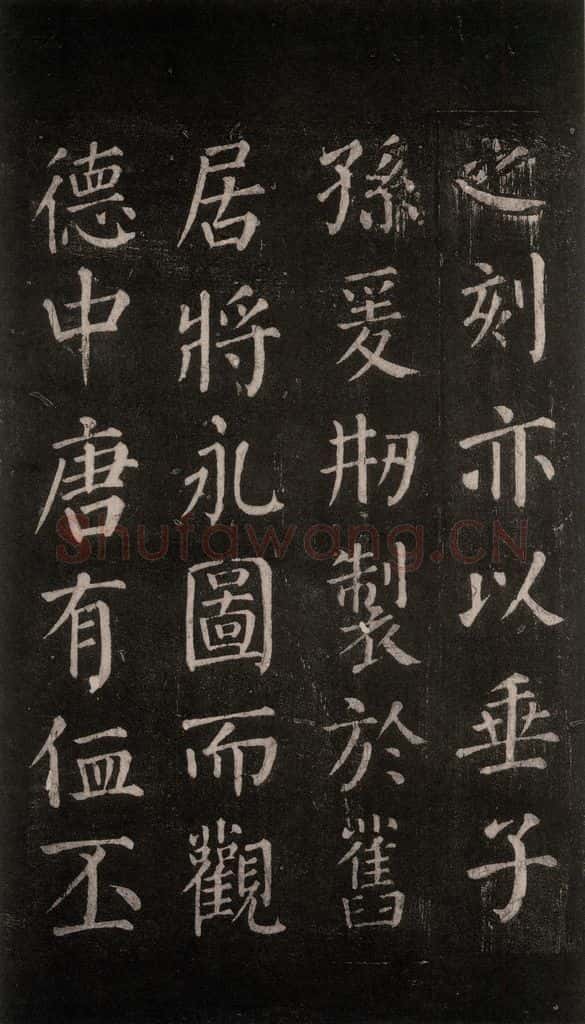 之刻亦以垂子
孫爰刱製於舊
居將永圖而觀
德中唐有侐丕
Shufawang.CN